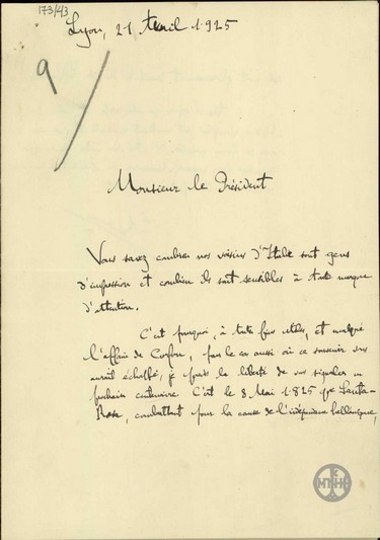 173/43
Lyon, 21 Avril 1925
9/
Monsieur le Président
Vous savez combien nos voisins d'Italie sont gens
d'impression et combien ils sont sensibles à toute marque
d'attention.
C'est pourquoi, à toute fin utiles, et malgré
l'affaire de Corfou, pour le cas aussi où ce souvenir vous
aurait échappé, je prends la liberté de vous signaler un
prochain centenaire. C'est le 8 Mai 1825 que Santa-
Rosa, combattant pour la cause de l'indépendance hellénique,